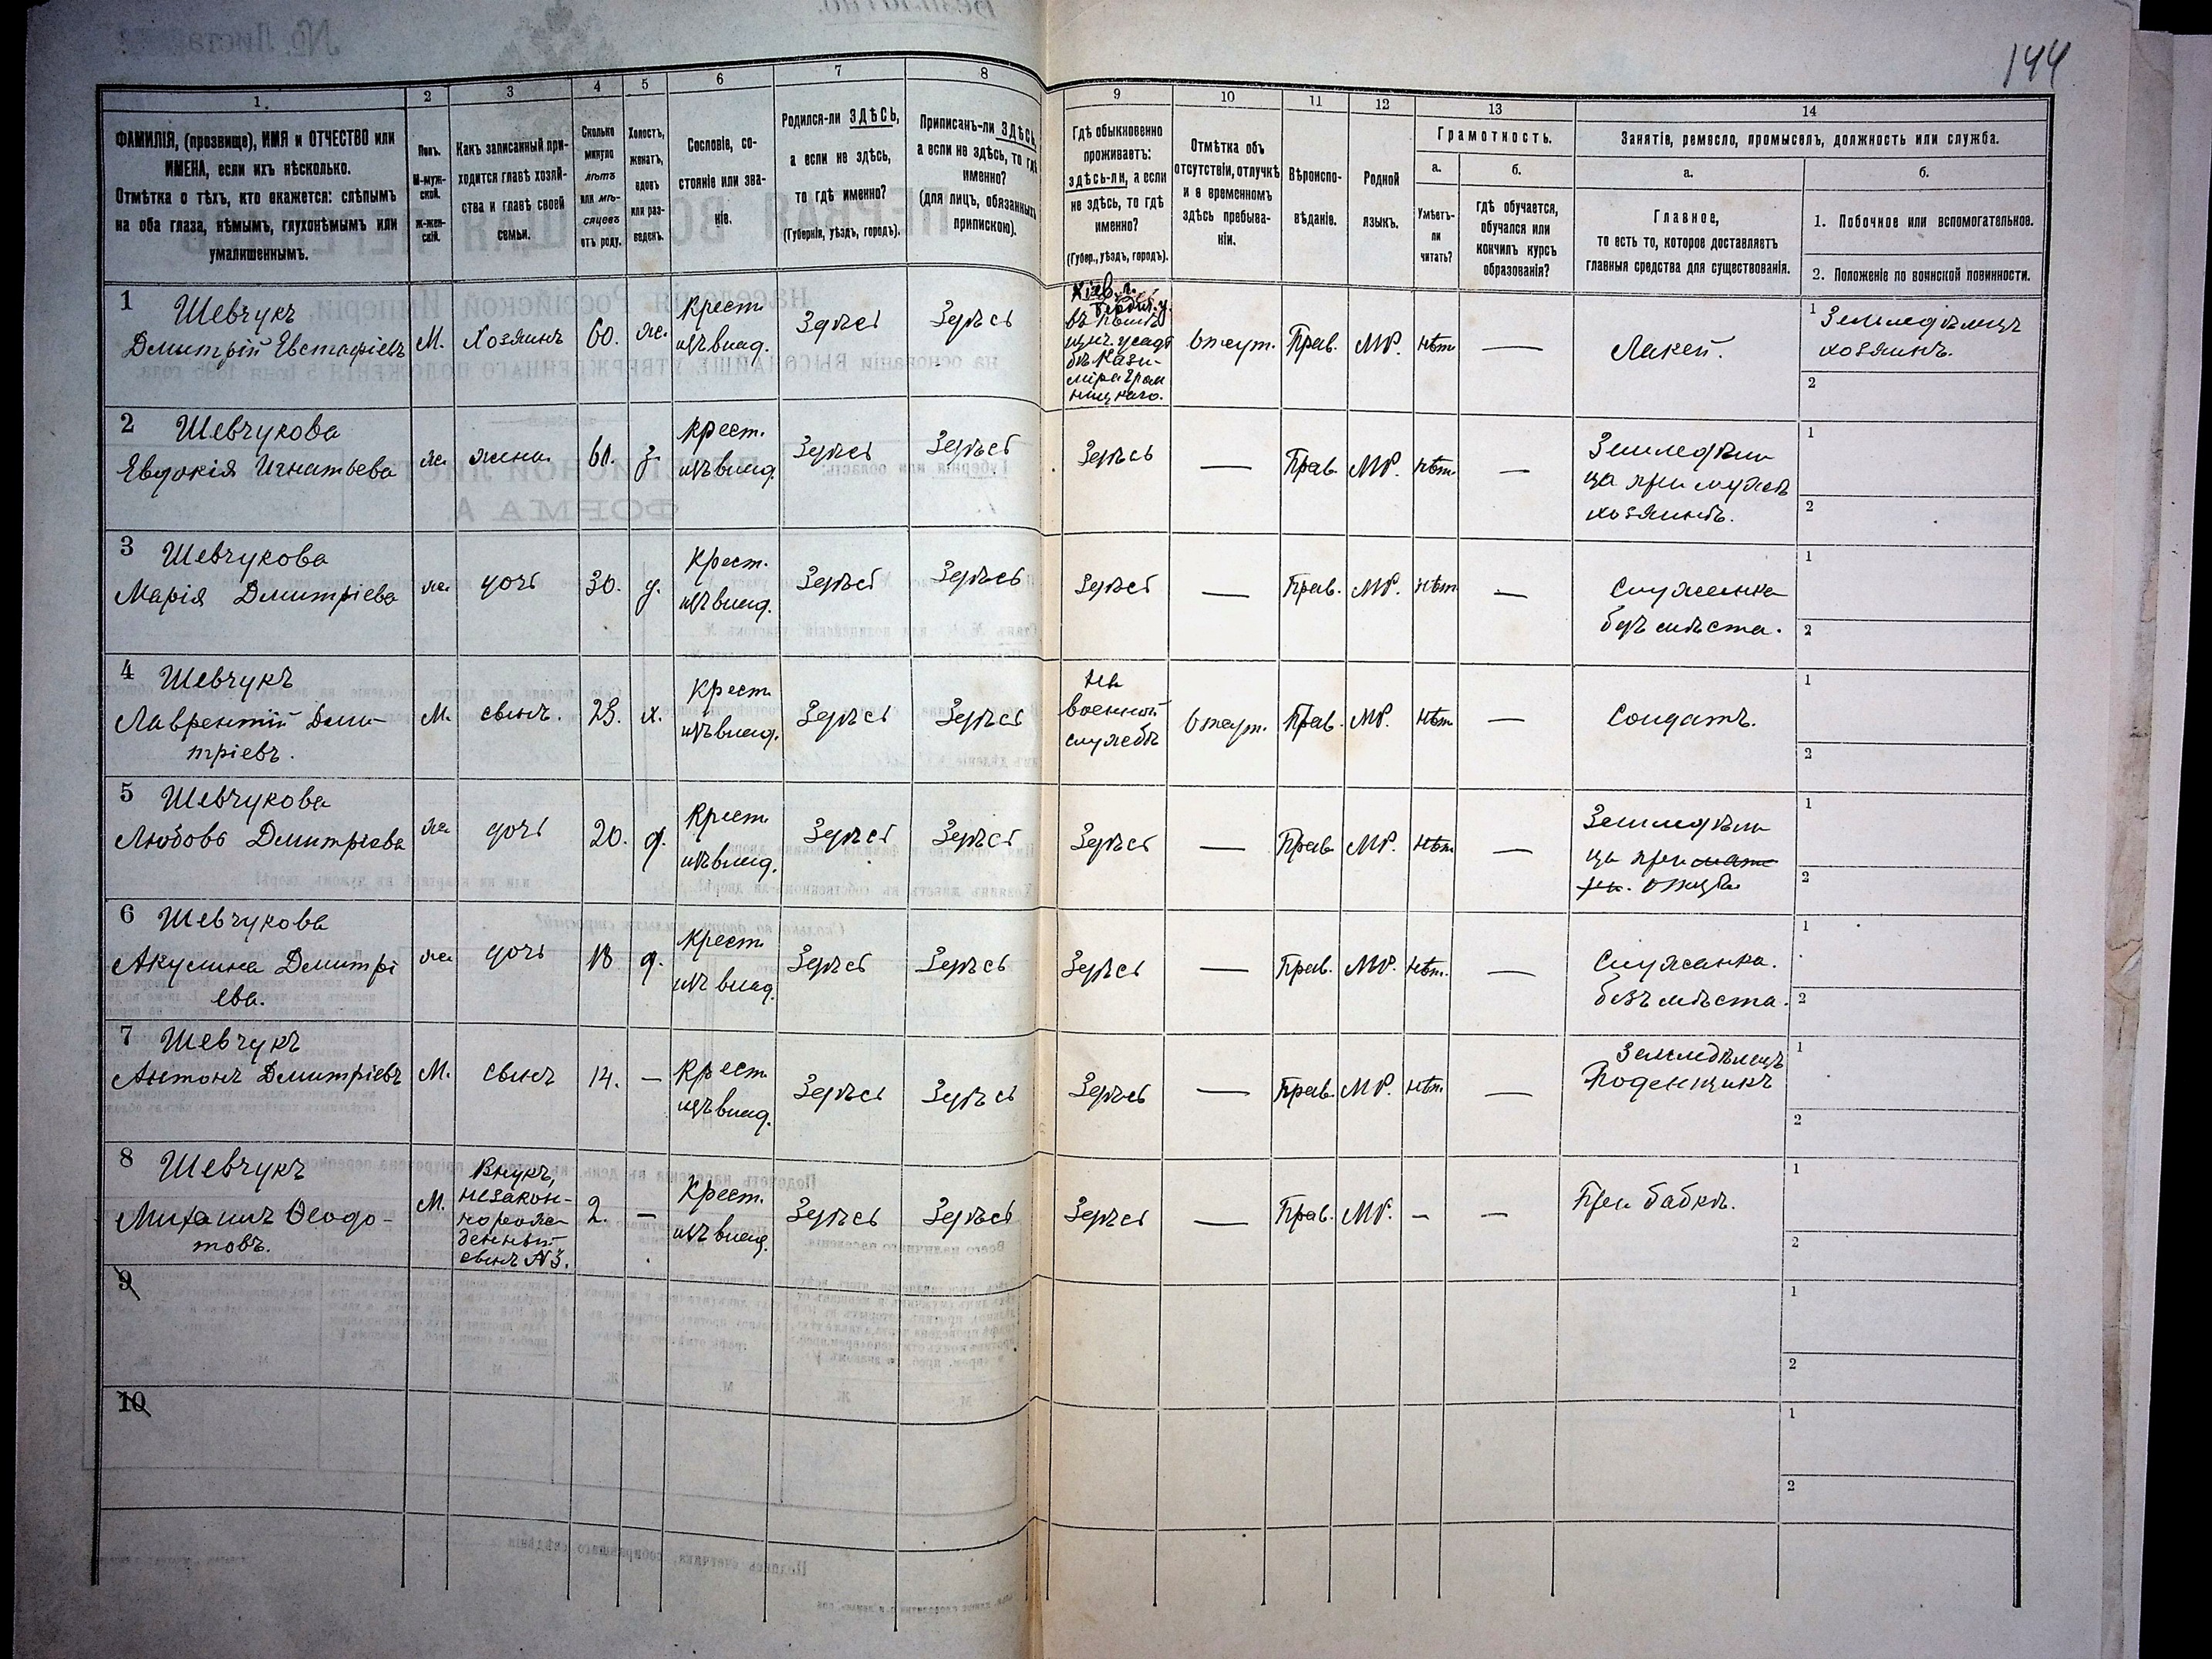 144
1.
2
3
4
5
6
7
8
9
10
11
12
13
14
ФАМИЛІЯ, (прозвище), ИМЯ и ОТЧЕСТВО или
ИМЕНА, если ихъ нѣсколько.
Отмѣтка о тѣхъ, кто окажется: слѣпымъ
на оба глаза, нѣмымъ, глухонѣмымъ или
умалишеннымъ.
Полъ.
М-муж-
ской.
ж-жен-
скій.
Какъ записанный при-
ходится главѣ хозяй-
ства и главѣ своей
семьи.
Сколько
минуло
лѣтъ
или мѣ-
сяцевъ
отъ роду.
Холостъ,
женатъ,
вдовъ
или раз-
веденъ.
Сословіе, со-
стояніе или зва-
ніе.
Родился-ли ЗДѢСЬ,
а если не здѣсь,
то гдѣ именно?
(Губернія, уѣздъ, городъ).
Приписанъ-ли ЗДѢСЬ,
а если не здѣсь, то гдѣ
именно?
(для лицъ, обязанныхъ
припискою).
Гдѣ обыкновенно
проживаетъ:
здѣсь-ли, а если
не здѣсь, то гдѣ
именно?
(Губер., уѣздъ, городъ).
Отмѣтка объ
отсутствіи, отлучкѣ
и о временномъ
здѣсь пребыва-
ніи.
Вѣроиспо-
вѣданіе.
Родной
языкъ.
Грамотность.
а.
Умѣетъ-
ли
читать?
б.
гдѣ обучается,
обучался или
кончилъ курсъ
образованія?
Занятіе, ремесло, промыселъ, должность или служба.
а.
Главное,
то есть то, которое доставляетъ
главныя средства для существованія.
б.
1. Побочное или вспомогательное.
2. Положеніе по воинской повинности.
1 Шевчукъ
Дмитрій Евстафіевъ
М.
Хозяинъ
60.
ж.
Крест.
изъ влад.
Здѣсь
Здѣсь
Кіев. г.
Бердич. у.
въ помѣ
щич. усадь
бѣ Кази-
міра
отсут.
Прав.
МР.
нѣт
—
Лакей.
1 Земледѣлецъ
хозяинъ.
2
2 Шевчукова
Евдокія Игнатьева
ж.
жена.
61.
з.
Крест.
изъ влад.
Здѣсь
Здѣсь
Здѣсь
—
Прав.
МР.
нѣт.
—
Земледѣли
ца при мужѣ
хозяинѣ.
1
2
3 Шевчукова
Марія Дмитріева
ж.
дочь
30.
д.
Крест.
изъ влад.
Здѣсь
Здѣсь
Здѣсь
—
Прав.
МР.
нѣт
—
Служанка
безъ мѣста.
1
2
4 Шевчукъ
Лаврентій Дми-
тріевъ.
М.
сынъ.
х.
Крест.
изъ влад.
Здѣсь
Здѣсь
На
военной
службѣ
отсут.
Прав.
МР.
нѣт
—
Солдатъ.
1
2
5 Шевчукова
Любовь Дмитріева
ж.
дочь
20.
д.
Крест.
изъ влад.
Здѣсь
Здѣсь
Здѣсь
—
Прав.
МР.
нѣт
—
Земледѣли
ца при мате
ри. отцѣ
1
2
6 Шевчукова
Акулина Дмитрі
ева.
ж.
дочь
18
д.
Крест.
изъ влад.
Здѣсь
Здѣсь
Здѣсь
—
Прав.
МР.
нѣт.
—
Служанка.
безъ мѣста.
1
2
7 Шевчукъ
Антонъ Дмитріевъ
М.
сынъ
14.
—
Крест.
изъ влад.
Здѣсь
Здѣсь
Здѣсь
—
Прав.
МР.
нѣт.
—
Земледѣлецъ
Поденщикъ
1
2
8 Шевчукъ
Михаилъ Ѳеодо-
товъ.
М.
Внукъ,
незакон-
норож
денный
сынъ №3.
2.
—
Крест.
изъ влад.
Здѣсь
Здѣсь
Здѣсь
—
Прав.
МР.
—
—
При бабкѣ.
1
2
9
1
2
10
1
2